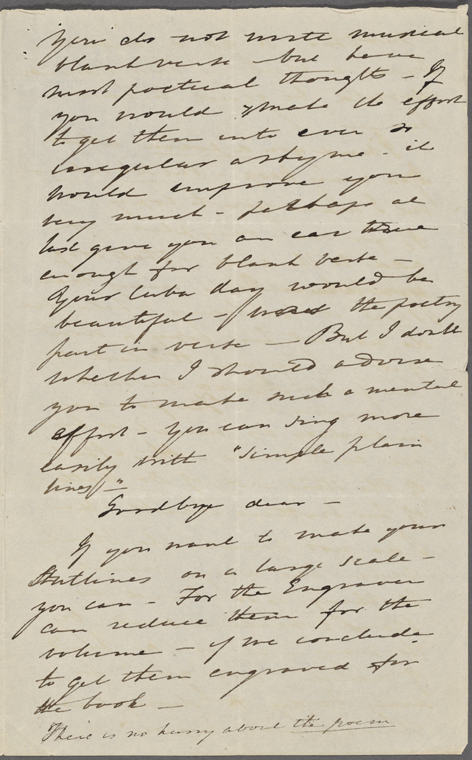 You do not write musical
blank verse - but have
most poetical thoughts - If
you would make the effort
to get them into ever so
irregular a rhyme - it
would improve you
very much - perhaps at
last give you an ear true
enough for blank verse -
Your Cuba day would be
beautiful - were the poetry
part in verse - But I doubt
whether I should advise
you to make such a mental
effort - You can sing more
easily with "simple plain
lines" -
Goodbye dear -
If you want to make your
Outlines on a large scale -
you can - For the Engraver
can reduce them for the
volume - if we conclude
to get them engraved for
the book -
There is no hurry about the poem